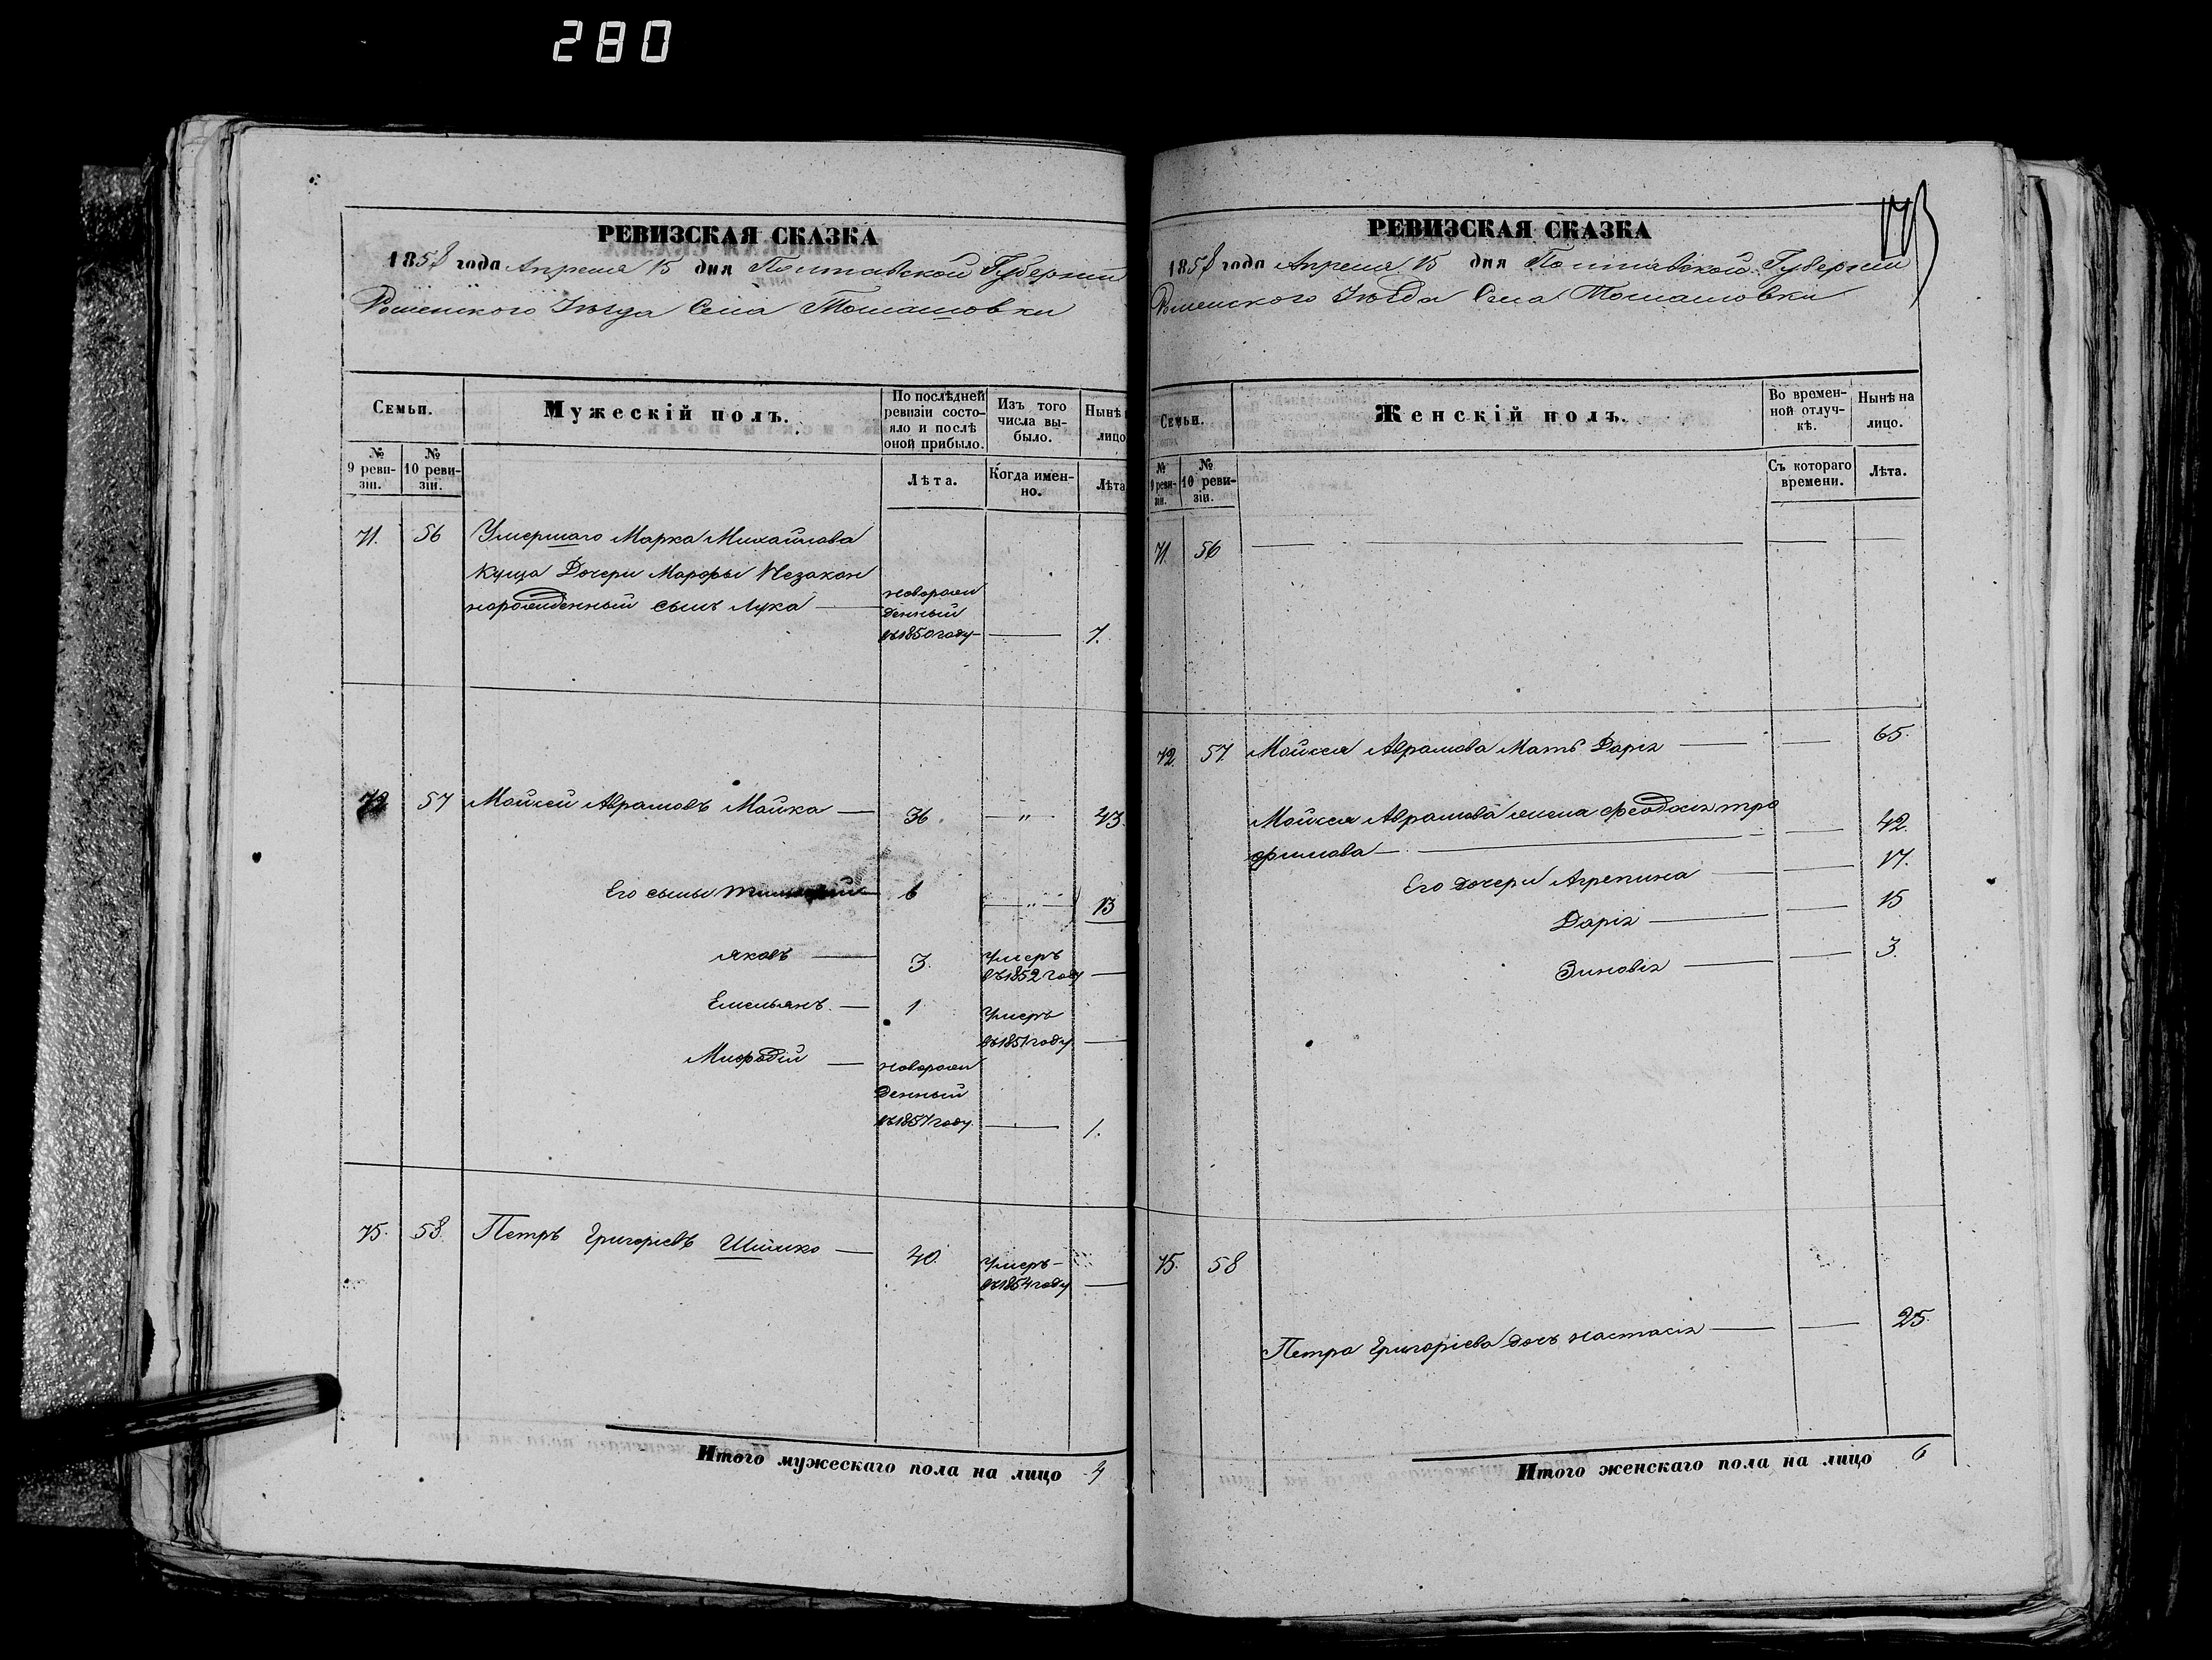 280
РЕВИЗСКАЯ СКАЗКА
1858 года Апреля 15 дня Полтавской Губернии
Роменского Уѣзда Села Томашовки
Семьи.
Мужескій полъ.
По послѣдней ревизіи состояло и послѣ оной прибыло.
Изъ того числа выбыло.
Нынѣ
лицо
№ 9 ревизіи.
№ 10 ревизіи.
Лѣта.
Когда именно.
Лѣта
71. 56 Умершаго Марка Михайлова
Куца Дочери Марфы Незакон
норожденный сынъ Лука — новорож
денный
въ 1850 году — 7.
72 57 Мойсей Аврамовъ Мойка — 36. — " — 43.
Его сыны — 6 — " — 13
Яковъ — 3. Умеръ
въ 1852 году —
Емельянъ. — 1 Умеръ
въ 1851 году —
Мифодій — новорож
денный
въ 1857 году. — 1.
75. 58. Петръ Григорьевъ — 40. Умеръ —
въ 1854 году —
Итого мужескаго пола на лицо
РЕВИЗСКАЯ СКАЗКА
1858 года Апреля 15 дня Полтавской Губернии
Роменского Уѣзда Села Томашовки
Семьи.
Женскій полъ.
Во временной отлучкѣ.
Нынѣ на лицо.
№ 9 ревизіи.
№ 10 ревизіи.
Съ котораго времени.
Лѣта.
71. 56 — — —
72. 57 Мойсея Аврамова Мать Дарія — — 65.
Мойсея Аврамова жена Феодосія Тро
фимова — — 42.
Его дочери Агрепина — — 17.
Дарія — — 15
Зиновія — — 3.
75. 58
Петра Григоріева дочь Настасія — — 25.
Итого женскаго пола на лицо 6